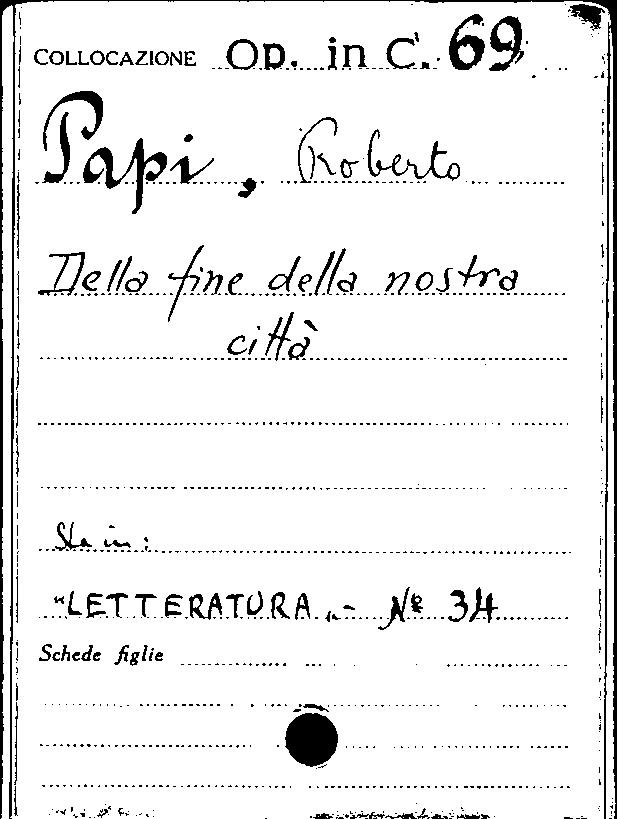 COLLOCAZIONE Op. in C. 69
Papi, Roberto
Della fine della nostra
città
Sta in:
"LETTERATURA„- Nº 34
Schede figlie